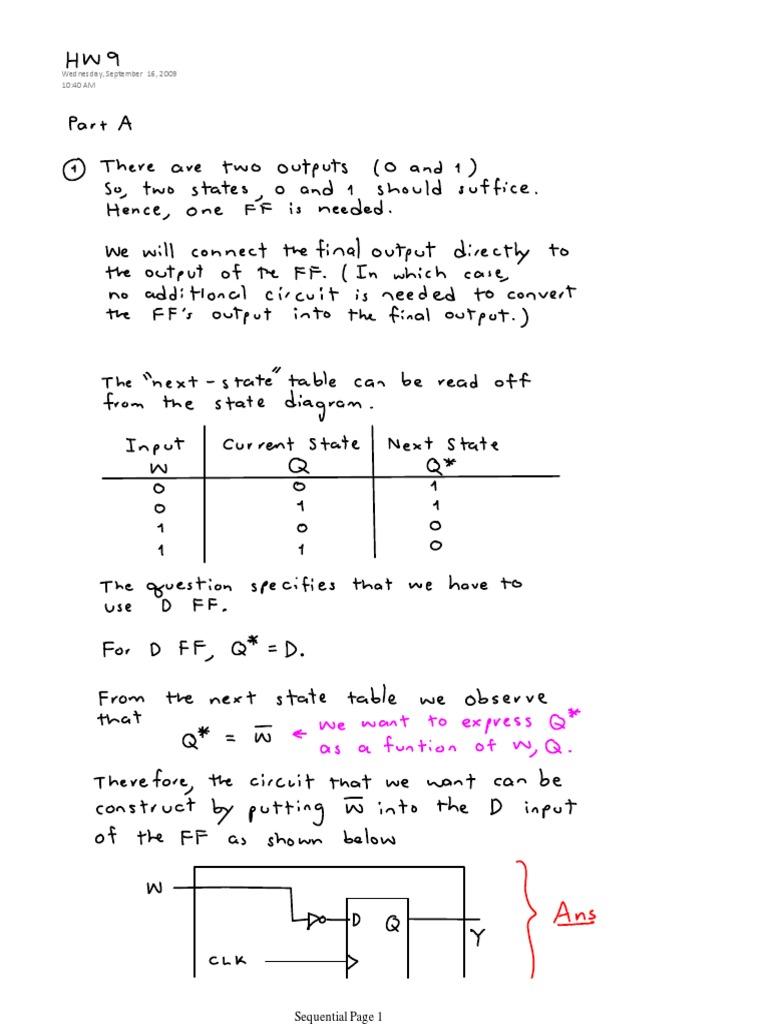 HW9
Wednesday, September 16, 2009
10:40 AM
Part A
1 There are two outputs (0 and 1)
So, two states, 0 and 1 should suffice.
Hence, one FF is needed.
We will connect the final output directly to
the output of the FF. (In which case,
no additional circuit is needed to convert
the FF's output into the final output.)
The "next-state" table can be read off
from the state diagram.
Input Current State Next State
W Q Q*
0 0 1
0 1 1
1 0 0
1 1 0
The question specifies that we have to
use D FF.
For D FF, Q* = D.
From the next state table we observe
that
Q* = W̅ ← we want to express Q*
as a funtion of W, Q.
Therefore, the circuit that we want can be
construct by putting W̅ into the D input
of the FF as shown below
W
D Q
Y
CLK
Ans
Sequential Page 1